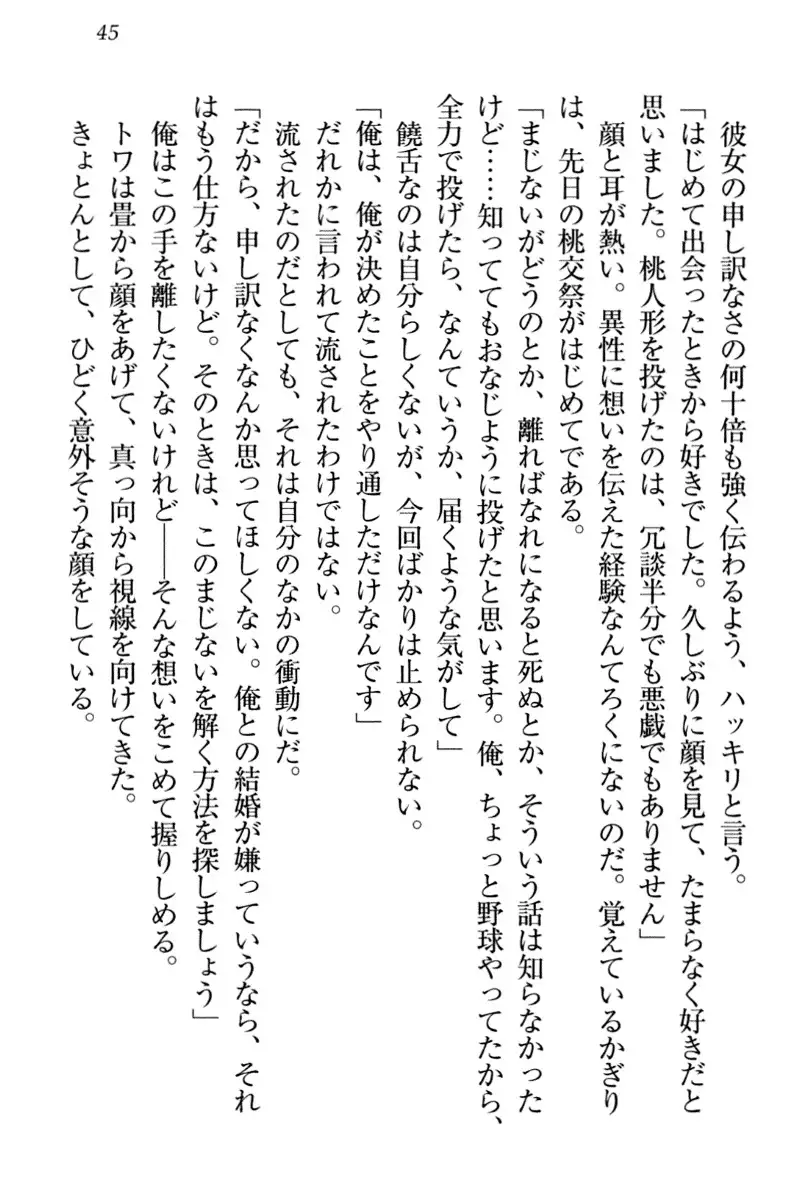 45
彼女の申し訳なさの何十倍も強く伝わるよう、ハッキリと言う。
「はじめて出会ったときから好きでした。久しぶりに顔を見て、たまらなく好きだと
思いました。桃人形を投げたのは、冗談半分でも悪戯でもありません」
顔と耳が熱い。異性に想いを伝えた経験なんてろくにないのだ。覚えているかぎり
は、先日の桃交祭がはじめてである。
「まじないがどうのとか、離ればなれになると死ぬとか、そういう話は知らなかった
けど……知っててもおなじように投げたと思います。俺、ちょっと野球やってたから、
全力で投げたら、なんていうか、届くような気がして」
饒舌なのは自分らしくないが、今回ばかりは止められない。
「俺は、俺が決めたことをやり通しただけなんです」
だれかに言われて流されたわけではない。
流されたのだとしても、それは自分のなかの衝動にだ。
「だから、申し訳なくなんか思ってほしくない。俺との結婚が嫌っていうなら、それ
はもう仕方ないけど。そのときは、このまじないを解く方法を探しましょう」
俺はこの手を離したくないけれど――そんな想いをこめて握りしめる。
トワは畳から顔をあげて、真っ向から視線を向けてきた。
きょとんとして、ひどく意外そうな顔をしている。